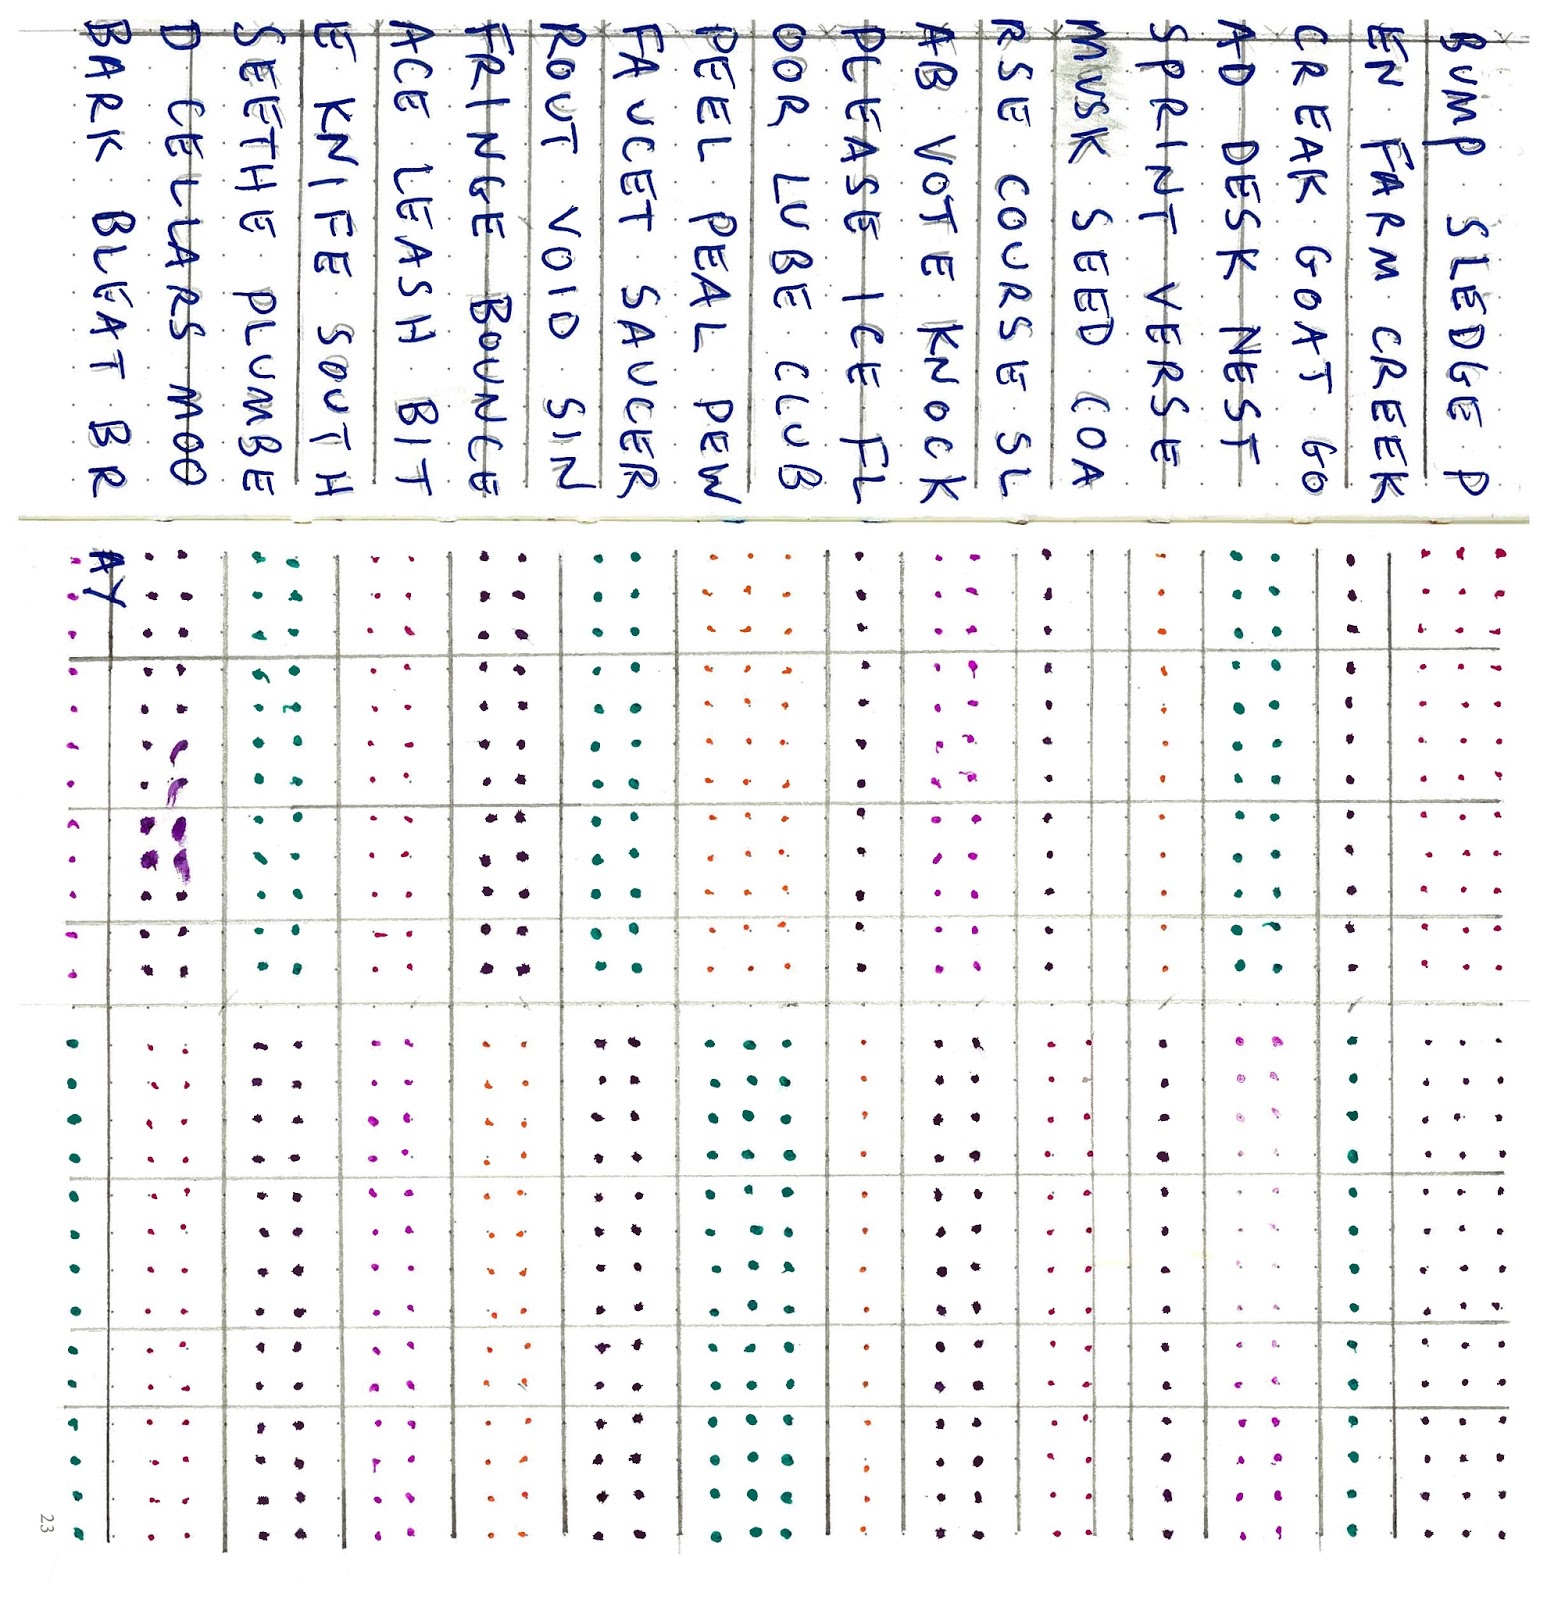 BUMP SLEDGE P
EN FARM CREEK
CREAK GOAT GO
AD DESK NEST
SPRINT VERSE
MUSK SEED COA
RSE COURSE SL
AB VOTE KNOCK
PLEASE ICE FL
OOR LUBE CLUB
PEEL PEAL PEW
FAUCET SAUCER
ROUT VOID SIN
FRINGE BOUNCE
ACE LEASH BIT
E KNIFE SOUTH
SEETHE PLUMBE
D CELLARS MOO
BARK BLEAT BR AY
23